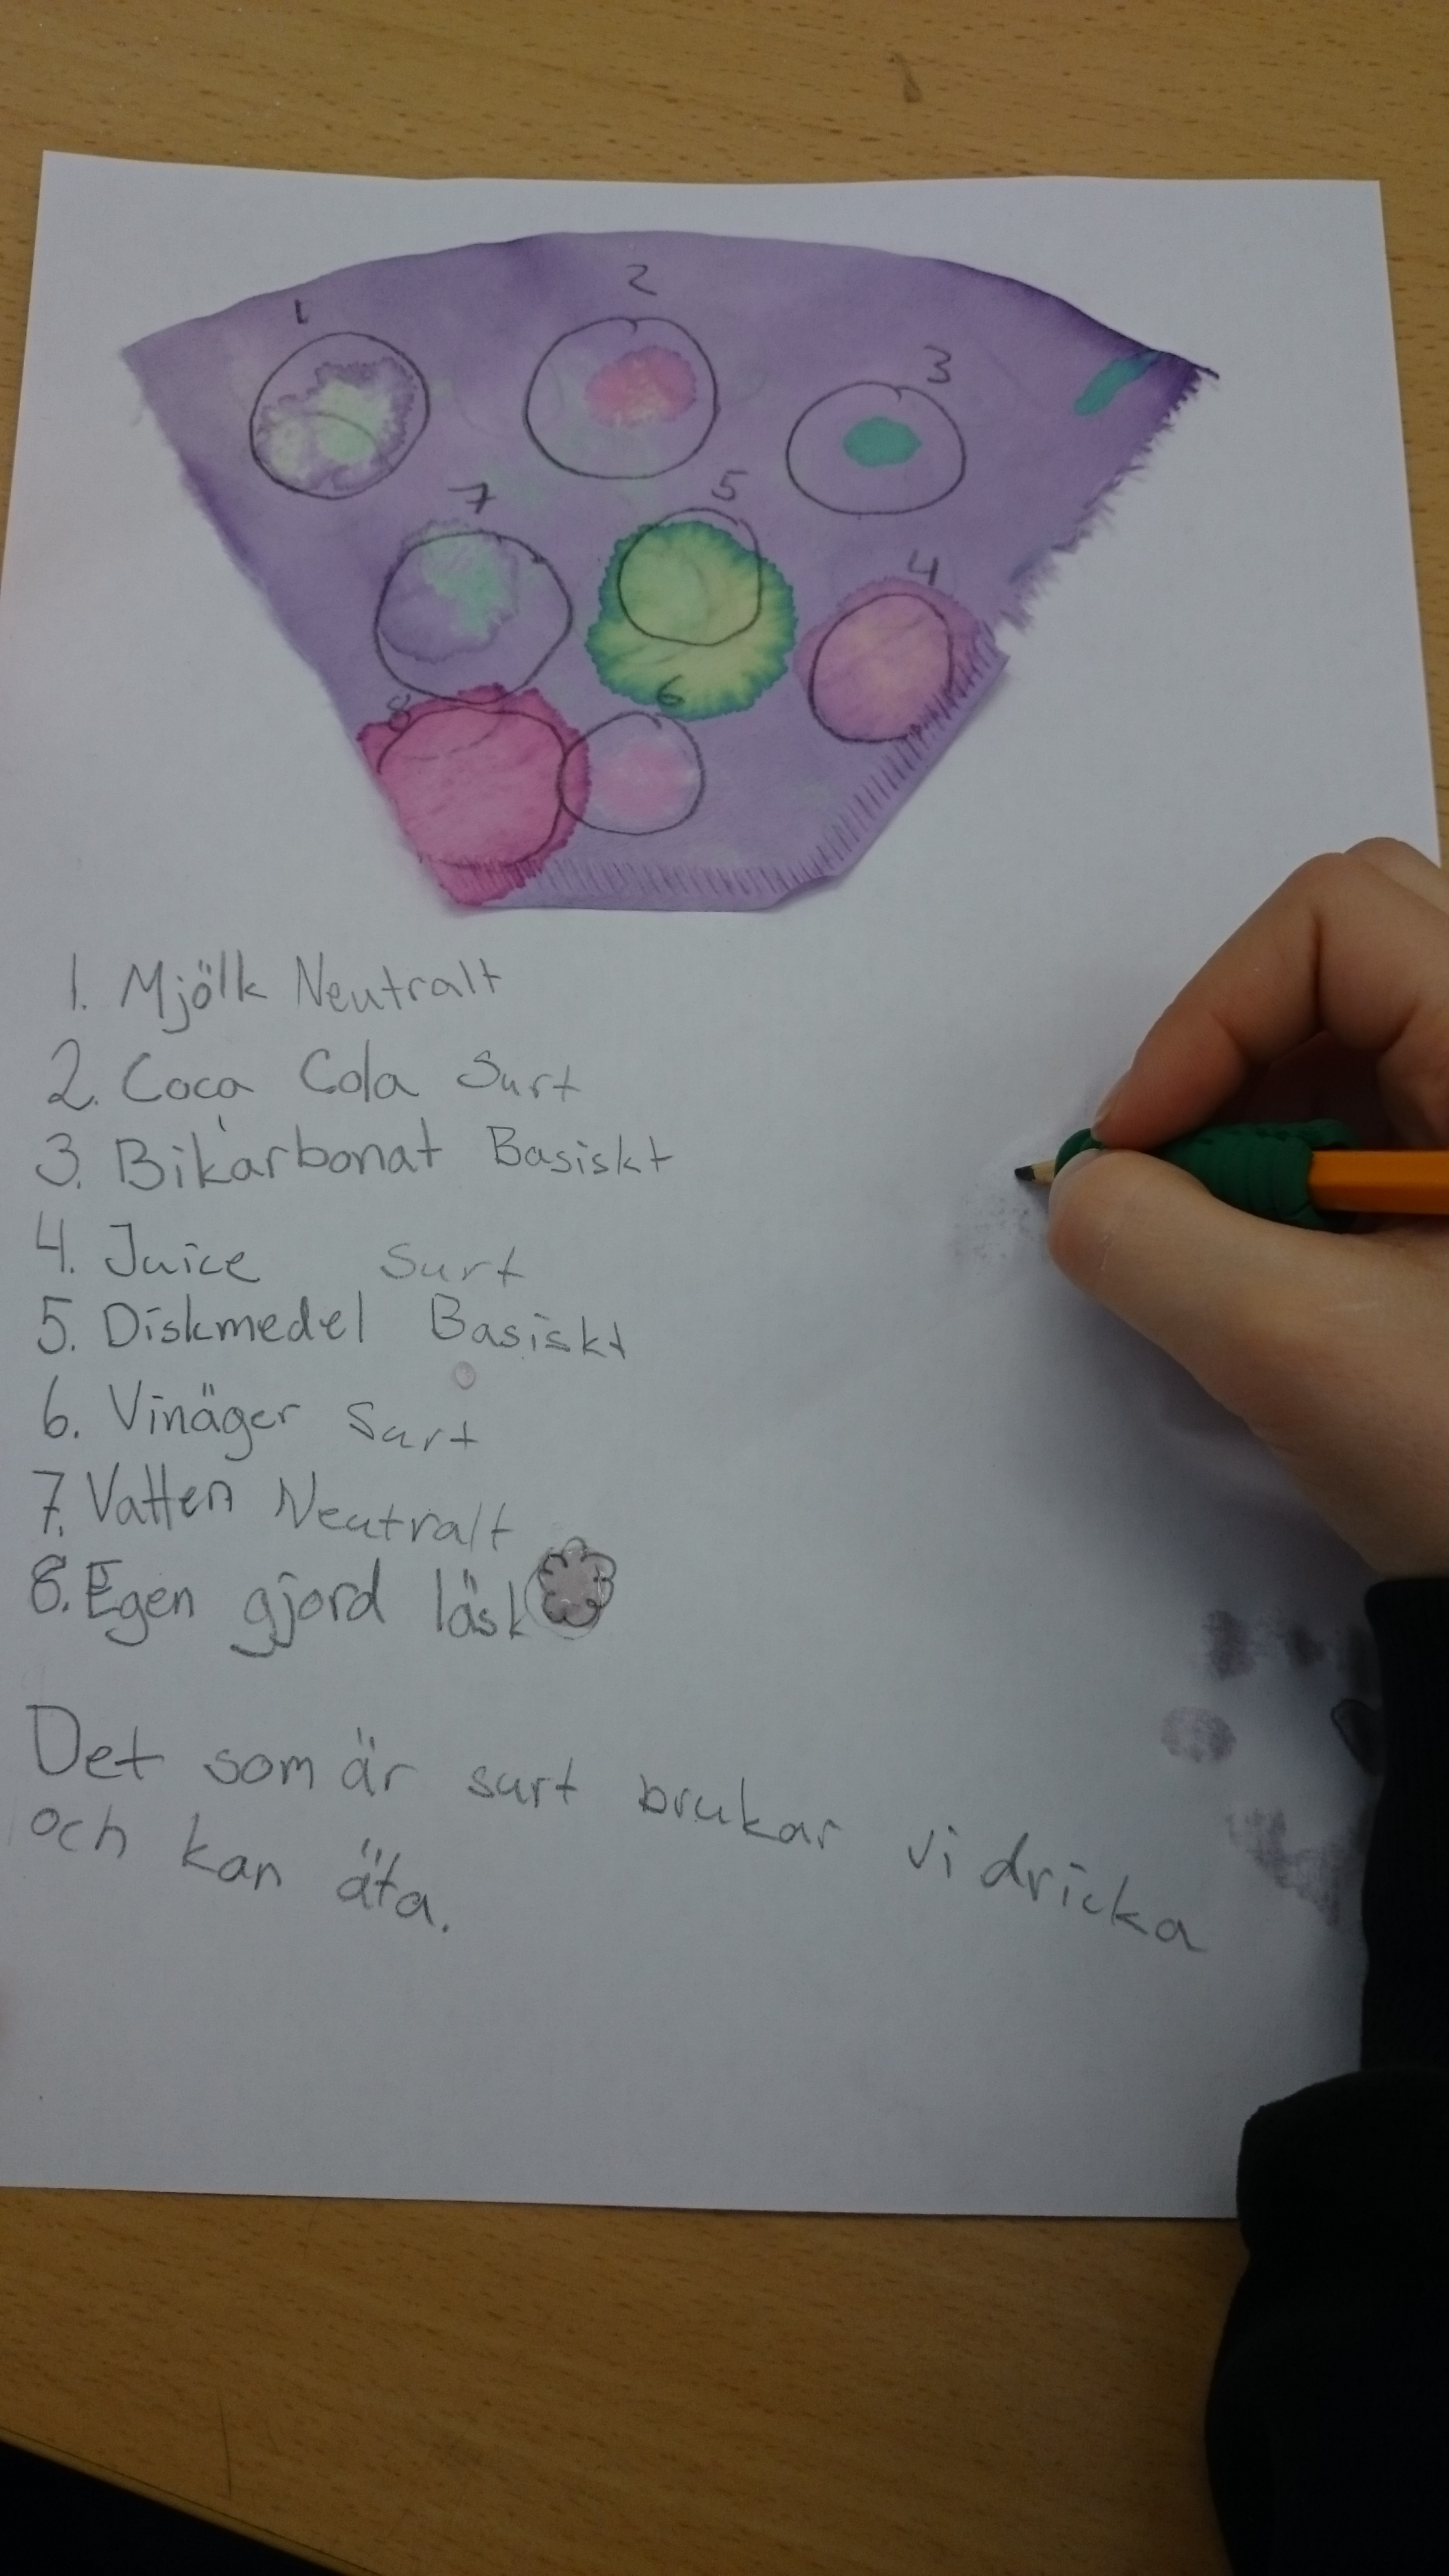 1
2
3
7
5
4
8
6
1. Mjölk Neutralt
2. Coca Cola Surt
3. Bikarbonat Basiskt
4. Juice Surt
5. Diskmedel Basiskt
6. Vinäger Surt
7. Vatten Neutralt
8. Egen gjord läsk
Det som är surt brukar vi dricka
och kan äta.